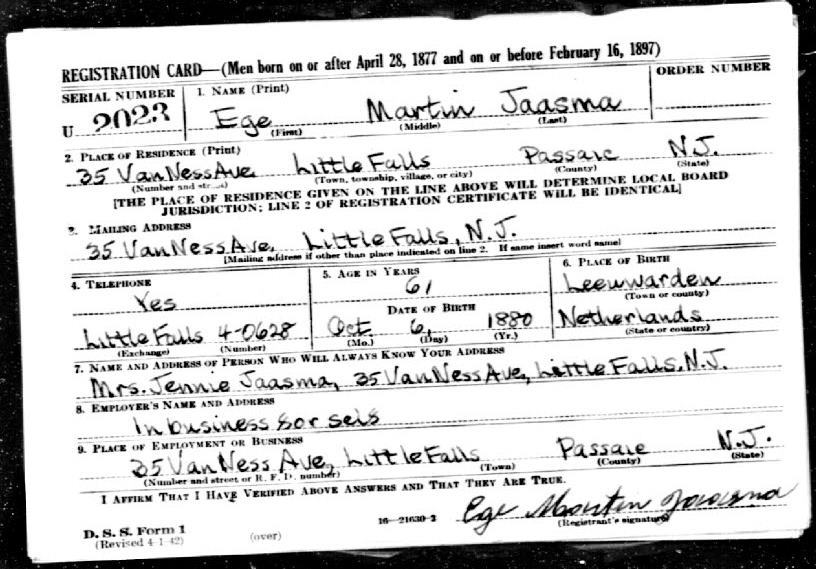 REGISTRATION CARD—(Men born on or after April 28, 1877 and on or before February 16, 1897)
SERIAL NUMBER 1. NAME (Print) ORDER NUMBER
U 2023 Ege Martin Jaasma
(First) (Middle) (Last)
2. PLACE OF RESIDENCE (Print)
35 Van Ness Ave Little Falls Passaic N.J.
(Number and street) (Town, township, village, or city) (County) (State)
[THE PLACE OF RESIDENCE GIVEN ON THE LINE ABOVE WILL DETERMINE LOCAL BOARD
JURISDICTION; LINE 2 OF REGISTRATION CERTIFICATE WILL BE IDENTICAL]
3. MAILING ADDRESS
35 Van Ness Ave, Little Falls, N.J.
[Mailing address if other than place indicated on line 2. If same insert word same]
4. TELEPHONE 5. AGE IN YEARS 6. PLACE OF BIRTH
Yes 61 Leeuwarden
DATE OF BIRTH (Town or county)
Little Falls 4-0628 Oct 6, 1880 Netherlands
(Exchange) (Number) (Mo.) (Day) (Yr.) (State or country)
7. NAME AND ADDRESS OF PERSON WHO WILL ALWAYS KNOW YOUR ADDRESS
Mrs. Jennie Jaasma, 35 Van Ness Ave, Little Falls, N.J.
8. EMPLOYER'S NAME AND ADDRESS
In business for self
9. PLACE OF EMPLOYMENT OR BUSINESS
35 Van Ness Ave, Little Falls Passaic N.J.
(Number and street or R. F. D. number) (Town) (County) (State)
I AFFIRM THAT I HAVE VERIFIED ABOVE ANSWERS AND THAT THEY ARE TRUE.
Ege Martin Jaasma
D. S. S. Form 1 16—21630-2 (Registrant's signature)
(Revised 4-1-42) (over)